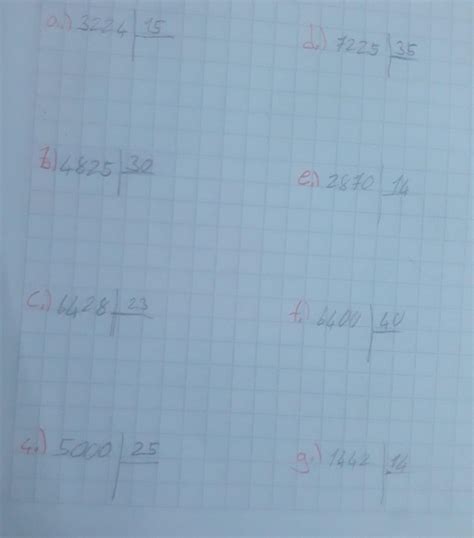 a.) 3224 15
d.) 7225 35
b) 4825 30
e.) 2870 14
c.) 6428 23
f.) 6400 40
5000 25
g.) 1442 14